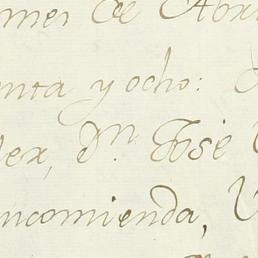 mes de Abr
enta y ocho:
lex, Dn. José
ncomienda,